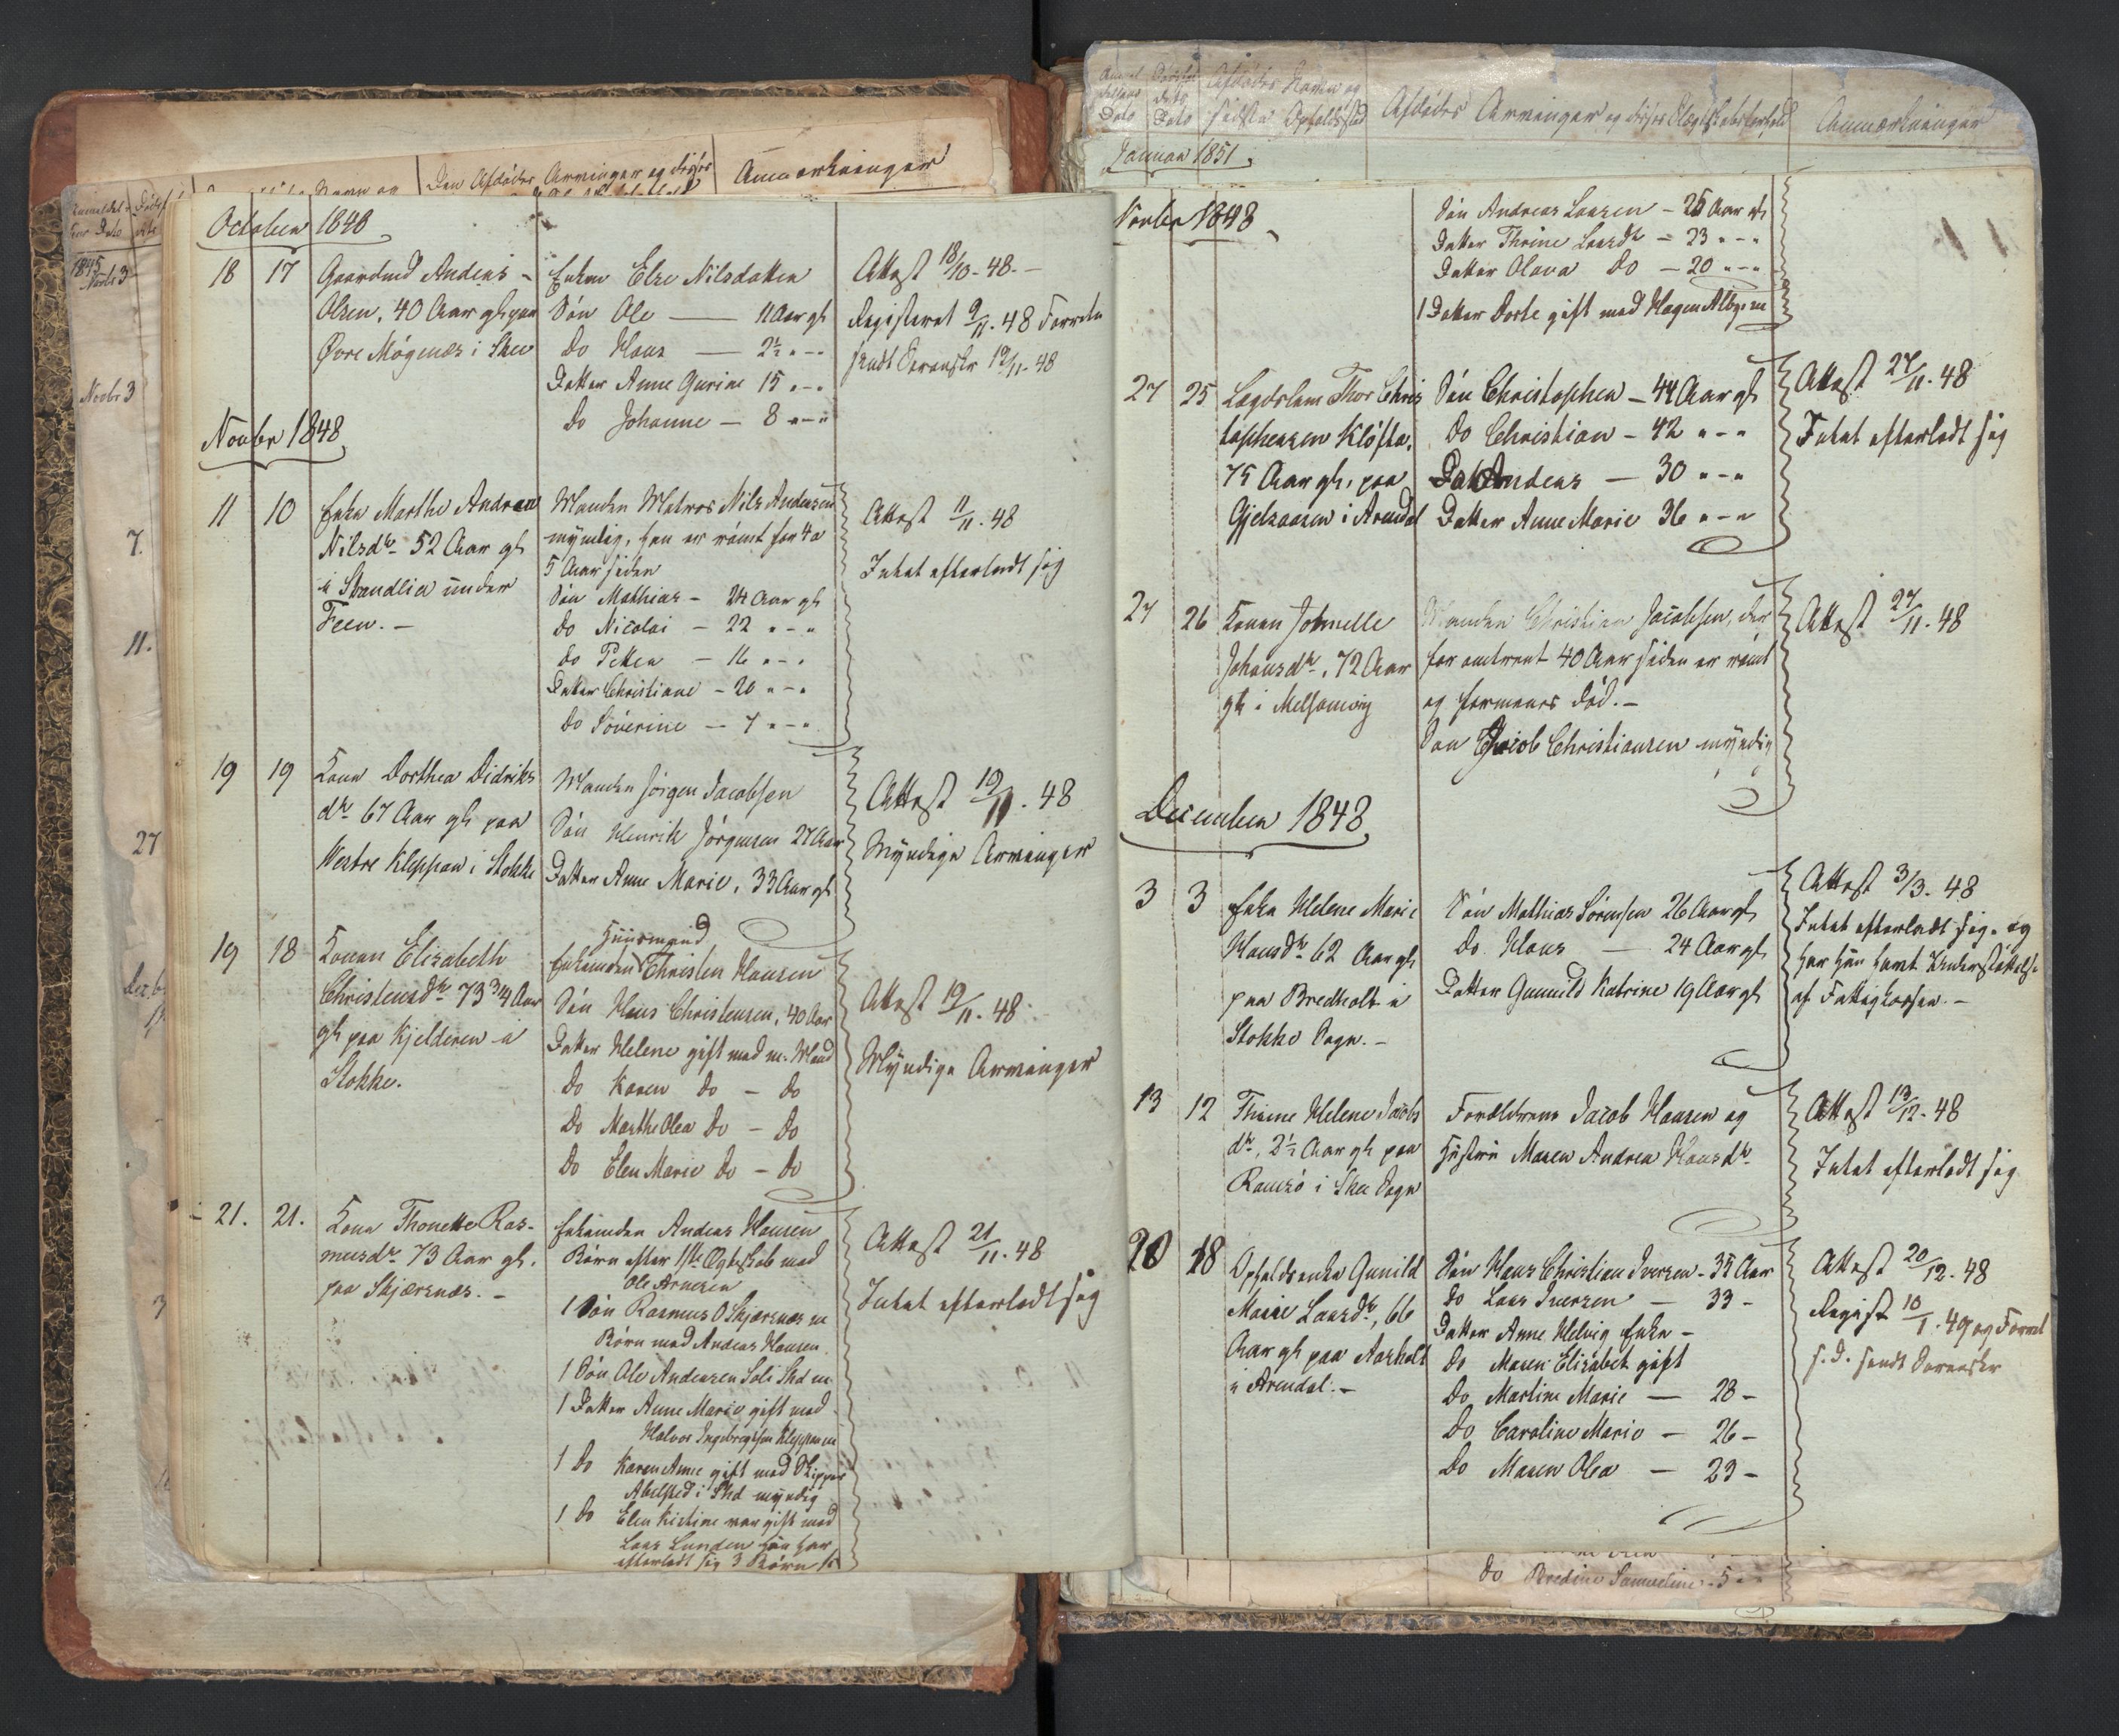 Den Afdødes Arvinger og disses
Anmærkninger
October 1848
18 17 Gaardmd Andreas
Olsen, 40 Aar gl paa
Øvre Møgenæs i Skee
Enken Else Nilsdatter
Søn Ole — 11 Aar gl
Do Hans — 2½ " - "
Datter Anne Gurine 15 " - "
Do Johanne — 8 " - "
Attest 18/10 - 48 -
Registeret 9/11 - 48 Forretn
sendt Sorenskr 19/11 - 48
Novbr 1848
11 10 Enke Marthe Andrea
Nilsdtr 52 Aar gl
i Strandlia under
Feen. -
Manden Matros Nils Andersen
myndig, han er rømt for 4 a
5 Aar siden
Søn Mathias - 24 Aar gl
Do Nicolai - 22 " - "
Do Petter - 16 " - "
Datter Christiane - 20 " - "
Do Søverine - 7 " - "
Attest 11/11 - 48
Intet efterladt sig
19 19 Kone Dorthea Didriks
dtr 67 Aar gl paa
Westre Kleppan i Stokke
Manden Jørgen Jacobsen
Søn Henrik Jørgensen 27 Aar
Datter Anne Marie, 33 Aar gl
Attest 19/11 - 48
Myndige Arvinger
19 18 Konen Elisabeth
Christensdtr 73 3/4 Aar
gl paa Kjelderen i
Stokke.
Huusmand
Enkemden Christen Hansen
Søn Hans Christensen, 40 Aar
Datter Helene gift med m. Mand
Do Karen do - do
Do Marthe Olea do - do
Do Elen Marie do - do
Attest 19/11 - 48
Myndige Arvinger
21. 21. Kone Thonette Ras-
musdtr 73 Aar gl.
paa Skjærsnæs. -
Enkemden Andreas Hansen
Børn efter 1ste Ægteskab med
Ole Arnesen
1 Søn Rasmus O Skjærsnæs m
Børn med Andreas Hansen
1 Søn Ole Andersen Soli Skd m
1 Datter Anne Marie gift med
Halvor Ingebregtsen Kleppan m
1 Do Karen Anne gift med Skipper
Abelsted i Skd myndig
1 Do Elen Kirstine var gift med
Lars Lunden hun har
efterladt sig 3 Børn
Attest 21/11 - 48
Intet efterladt sig
Afdødes Navn og
sidste Opholdssted
Afdødes Arvinger og disses Slægtskabsforhold
Anmærkninger
Januar 1851
Novbr 1848
Søn Andreas Larsen - 25 Aar gl
Datter Thrine Larsdtr - 23 " - "
Datter Olava do - 20 " - "
1 Datter Dorte gift med Hagen Albye m
27 25 Lægdslem Thor Chris
tophersen Kløfta,
75 Aar gl, paa
Gjelsaasen i Arendal
Søn Christopher - 44 Aar gl
Do Christian - 42 " - "
Do Andreas - 30 " - "
Datter Anne Marie 36 " - "
Attest 27/11 - 48
Intet efterladt sig
27 26 Konen
Johansdtr, 72 Aar
gl i Melsomvig
Manden Christian Jacobsen, der
for omtrent 40 Aar siden er rømt
og formenes død. -
Søn Jacob Christiansen myndig
Attest 27/11 - 48
December 1848
3 3 Enke Helene Marie
Hansdtr 62 Aar gl
paa Bredholt i
Stokke Sogn. -
Søn Mathias Sørensen 26 Aar gl
Do. Hans - 24 Aar gl
Datter Gunnild Katrine 19 Aar gl
Attest 3/3 - 48
Intet efterladt sig, og
har hun havt Understøttelse
af Fattigkassen. -
13 12 Thrine Helene Jacobs
dtr, 2½ Aar gl paa
Ramsø i Skee Sogn
Forældrene Jacob Hansen og
Hustru Maren Andrea Hansdtr
Attest 13/12 - 48
Intet efterladt sig
20 18 Opholdsenke Gunild
Marie Larsdtr, 66
Aar gl paa Aasholt
i Arendal. -
Søn Hans Christian Iversen - 35 Aar
Do Lars Iversen - 33 -
Datter Anne Helvig Enke -
Do Maren Elisabet gift
Do Martine Marie - 28 -
Do Caroline Marie - 26 -
Do Maren Olea - 23 -
Attest 20/12 - 48
Regist 10/1 - 49 og Forret
s. D. sendt Sorenskr
Do Bredine Samueline - 5 "